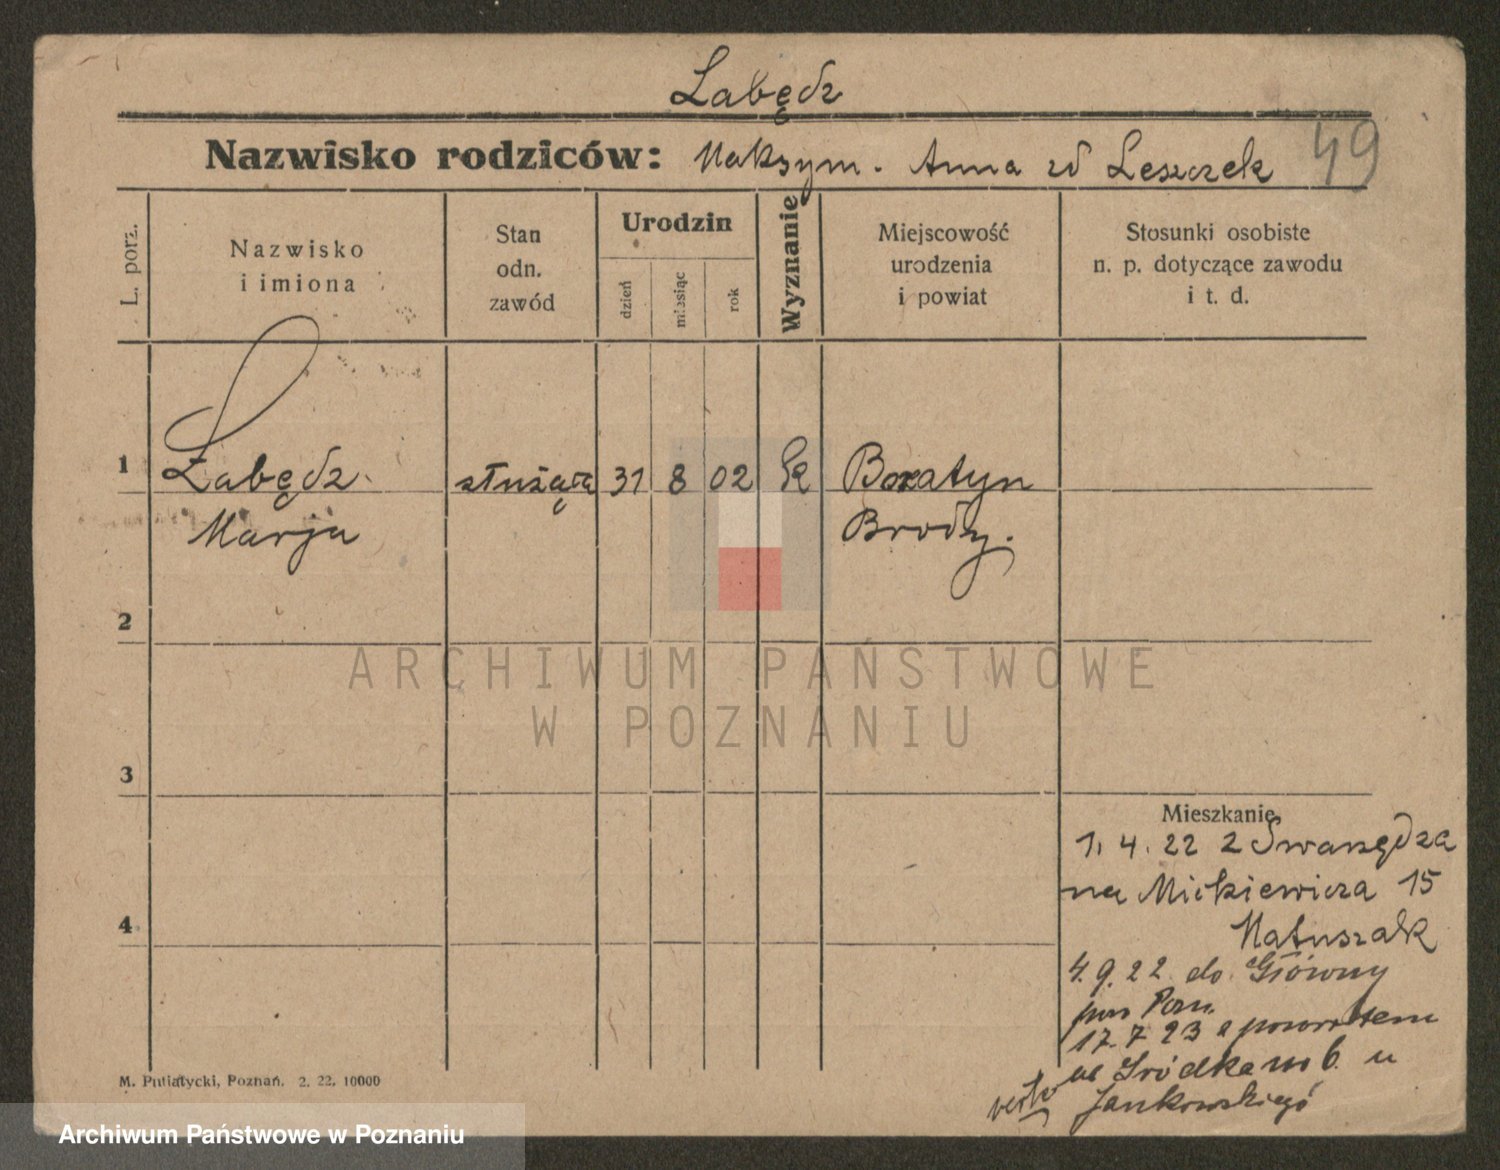 Łabędz
Nazwisko rodziców: Maksym. Anna zd Leszczek
49
L. porz.
Nazwisko
i imiona
Stan
odn.
zawód
Urodzin
dzień
miesiąc
rok
Wyznanie
Miejscowość
urodzenia
i powiat
Stosunki osobiste
n. p. dotyczące zawodu
i t. d.
1 Łabędz służąca 31 8 02 k Boratyn
Marja Brody.
2
3
4
Mieszkanie
1. 4. 22 z Swarzędza
na Mickiewicza 15
Matuszak
4. 9. 22 do Główny
pow Pozn.
17. 7 23 z powrotem
Śródka 6 u
Jankowskiego
verto
M. Putiatycki, Poznań. 2. 22. 10000
ARCHIWUM PAŃSTWOWE
W POZNANIU
Archiwum Państwowe w Poznaniu